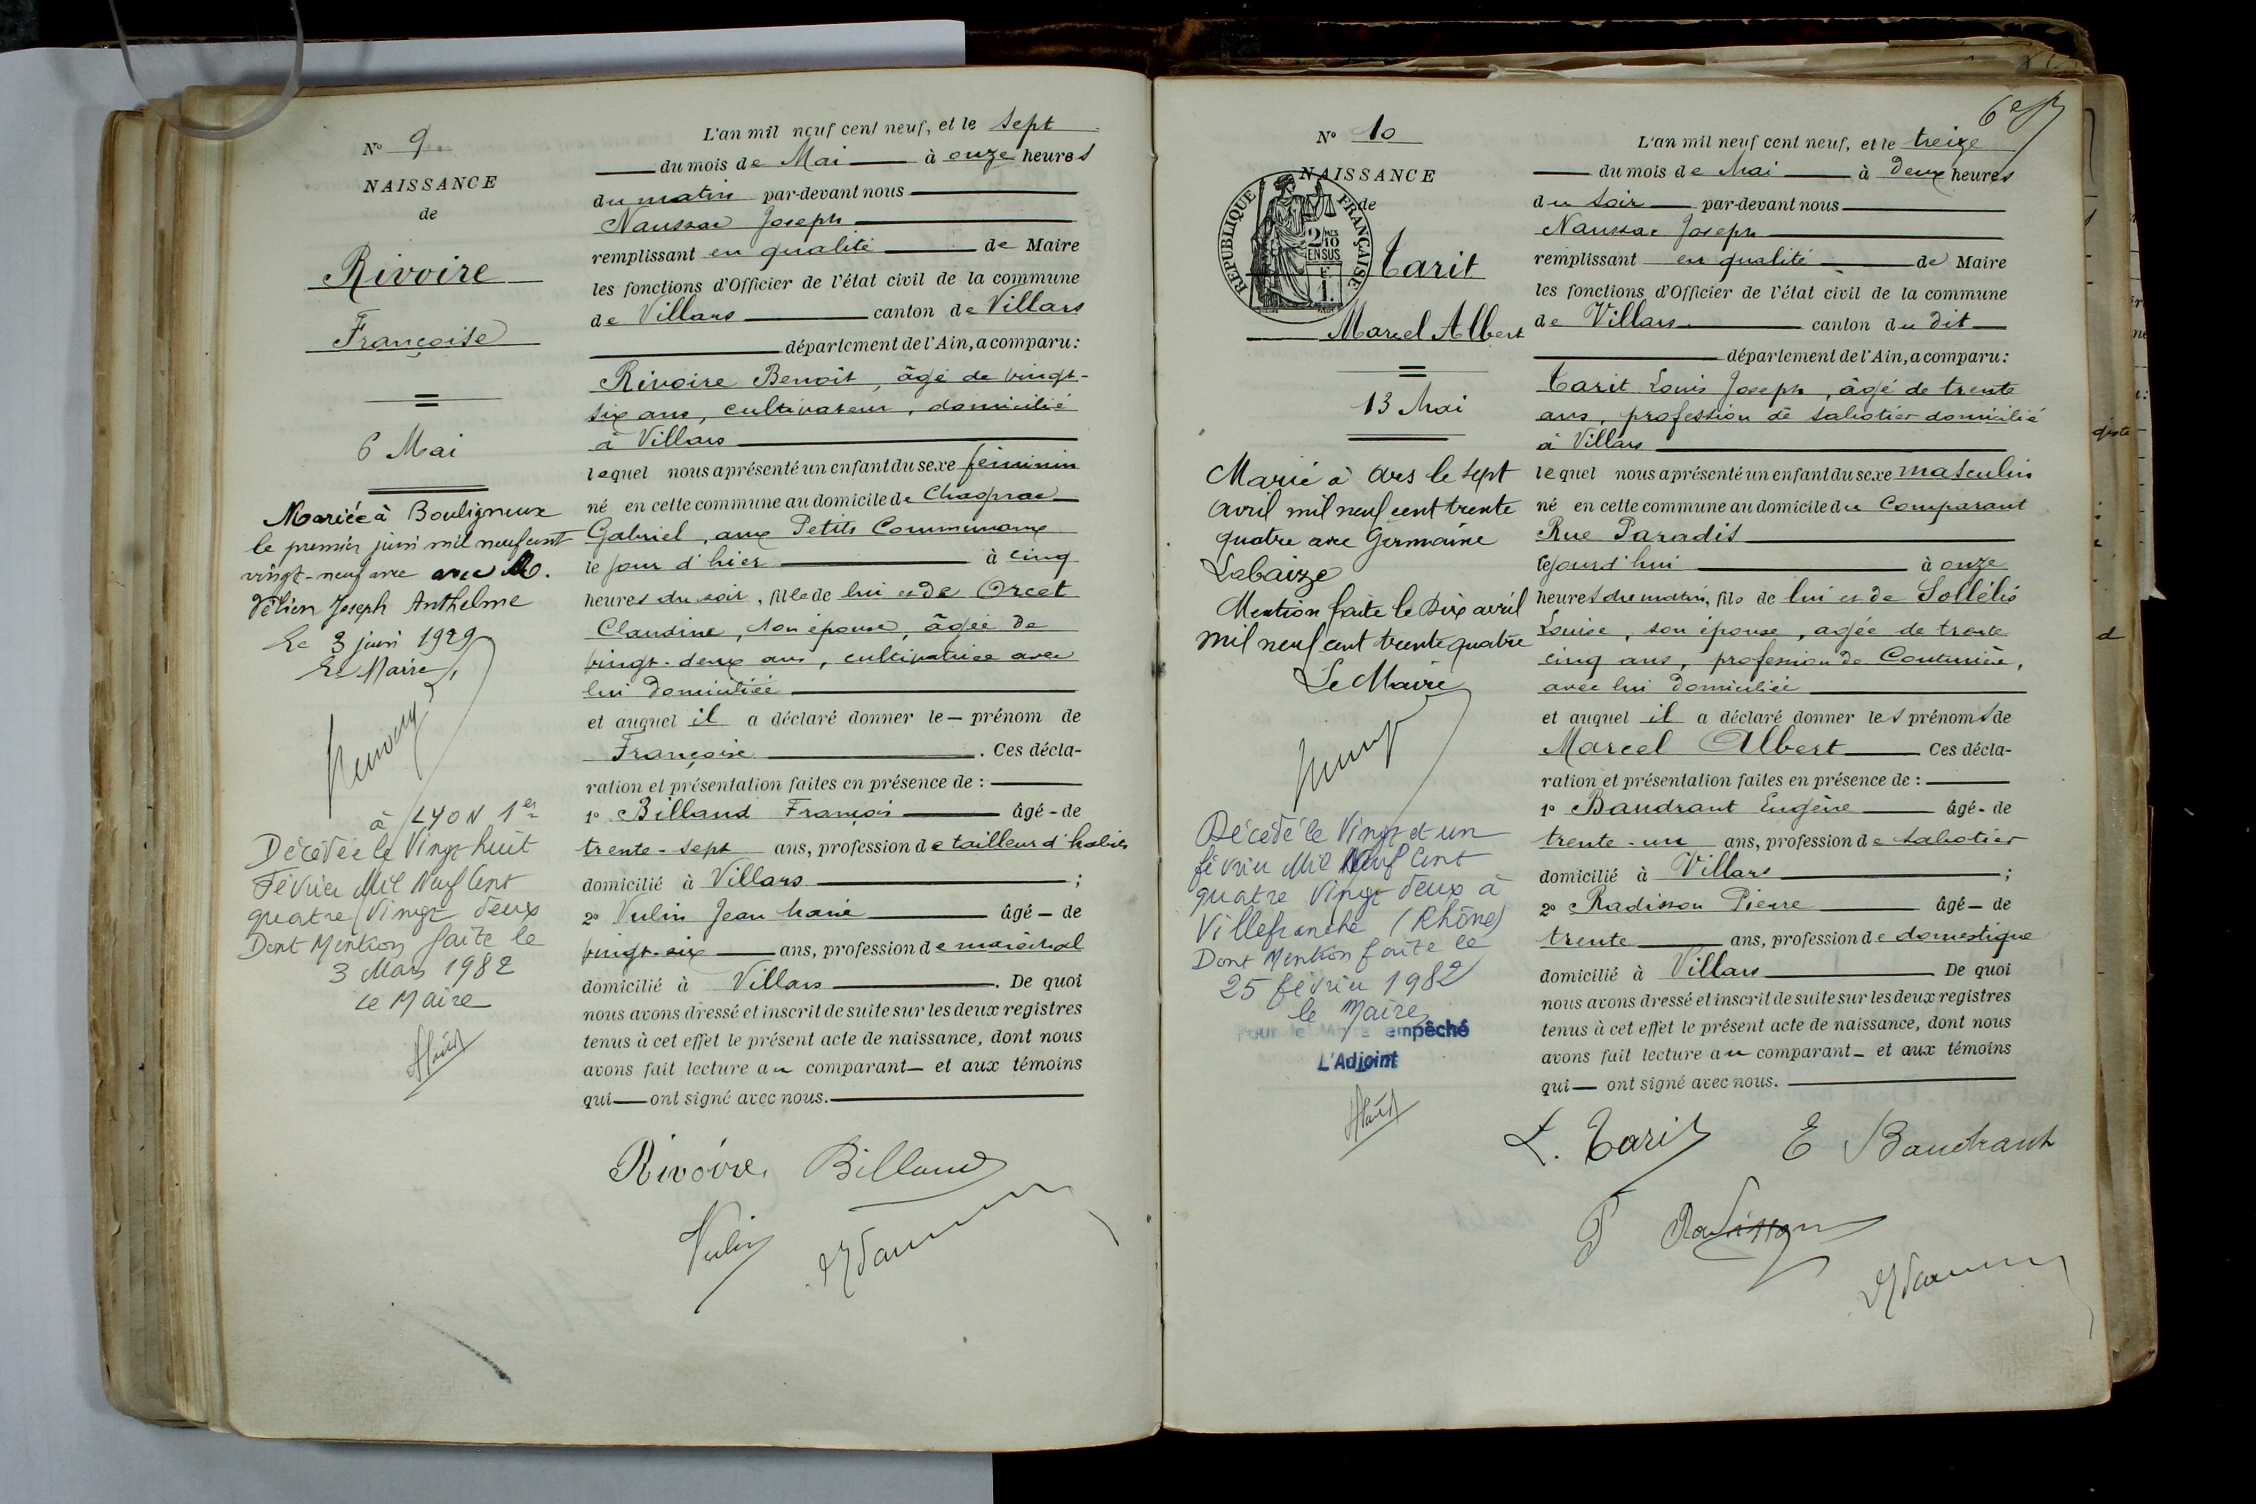 N° 9
NAISSANCE
de
Rivoire
Françoise
6 Mai
Mariée à Bouligneux
le premier juin mil neuf cent
vingt-neuf avec avec M.
Joseph Anthelme
Le 3 juin 1929
Le Maire,
à LYON 1er
Décédée le Vingt huit
Février Mil Neuf Cent
quatre Vingt deux
Dont Mention faite le
3 Mars 1982
Le Maire
L'an mil neuf cent neuf, et le sept
du mois de Mai à onze heures
du matin par-devant nous
Naussac Joseph
remplissant en qualité de Maire
les fonctions d'Officier de l'état civil de la commune
de Villars canton de Villars
département de l'Ain, a comparu :
Rivoire Benoît, âgé de vingt-
six ans, cultivateur, domicilié
à Villars
lequel nous a présenté un enfant du sexe féminin
né en cette commune au domicile de
Gabriel, aux Petits Communaux
le jour d'hier à cinq
heures du soir, fille de lui et de Orcet
Claudine, son épouse, âgée de
vingt-deux ans, cultivatrice avec
lui domiciliée
et auquel il a déclaré donner le prénom de
Françoise. Ces décla-
ration et présentation faites en présence de :
1° Billaud François âgé de
trente-sept ans, profession de tailleur d'habits
domicilié à Villars ;
2° Vulin Jean Marie âgé de
vingt-six ans, profession de maréchal
domicilié à Villars. De quoi
nous avons dressé et inscrit de suite sur les deux registres
tenus à cet effet le présent acte de naissance, dont nous
avons fait lecture au comparant et aux témoins
qui ont signé avec nous.
Rivoire Billaud
Vulin
N° 10
NAISSANCE
de
REPUBLIQUE FRANÇAISE
2/10 EN SUS
F.
1.
Tarit
Marcel Albert
13 Mai
Marié à Ars le sept
Avril mil neuf cent trente
quatre avec Germaine
Labaize
Mention faite le dix avril
mil neuf cent trente quatre
Le Maire
Décédé le Vingt et un
février Mil Neuf Cent
quatre Vingt deux à
Villefranche (Rhône)
Dont Mention faite le
25 février 1982
le Maire
Pour le Maire empêché
L'Adjoint
L'an mil neuf cent neuf, et le treize
du mois de Mai à deux heures
du soir par-devant nous
Naussac Joseph
remplissant en qualité de Maire
les fonctions d'Officier de l'état civil de la commune
de Villars canton du dit
département de l'Ain, a comparu :
Tarit Louis Joseph, âgé de trente
ans, profession de sabotier domicilié
à Villars
lequel nous a présenté un enfant du sexe masculin
né en cette commune au domicile du Comparant
Rue Paradis
cejourd'hui à onze
heures du matin, fils de lui et de Sollélis
Louise, son épouse, agée de trente
cinq ans, profession de Couturière,
avec lui domiciliée
et auquel il a déclaré donner les prénoms de
Marcel Albert Ces décla-
ration et présentation faites en présence de :
1° Baudrant Eugène âgé de
trente-un ans, profession de sabotier
domicilié à Villars ;
2° Radisson Pierre âgé de
trente ans, profession de domestique
domicilié à Villars De quoi
nous avons dressé et inscrit de suite sur les deux registres
tenus à cet effet le présent acte de naissance, dont nous
avons fait lecture au comparant et aux témoins
qui ont signé avec nous.
L. Tarit E Baudrant
P Radisson